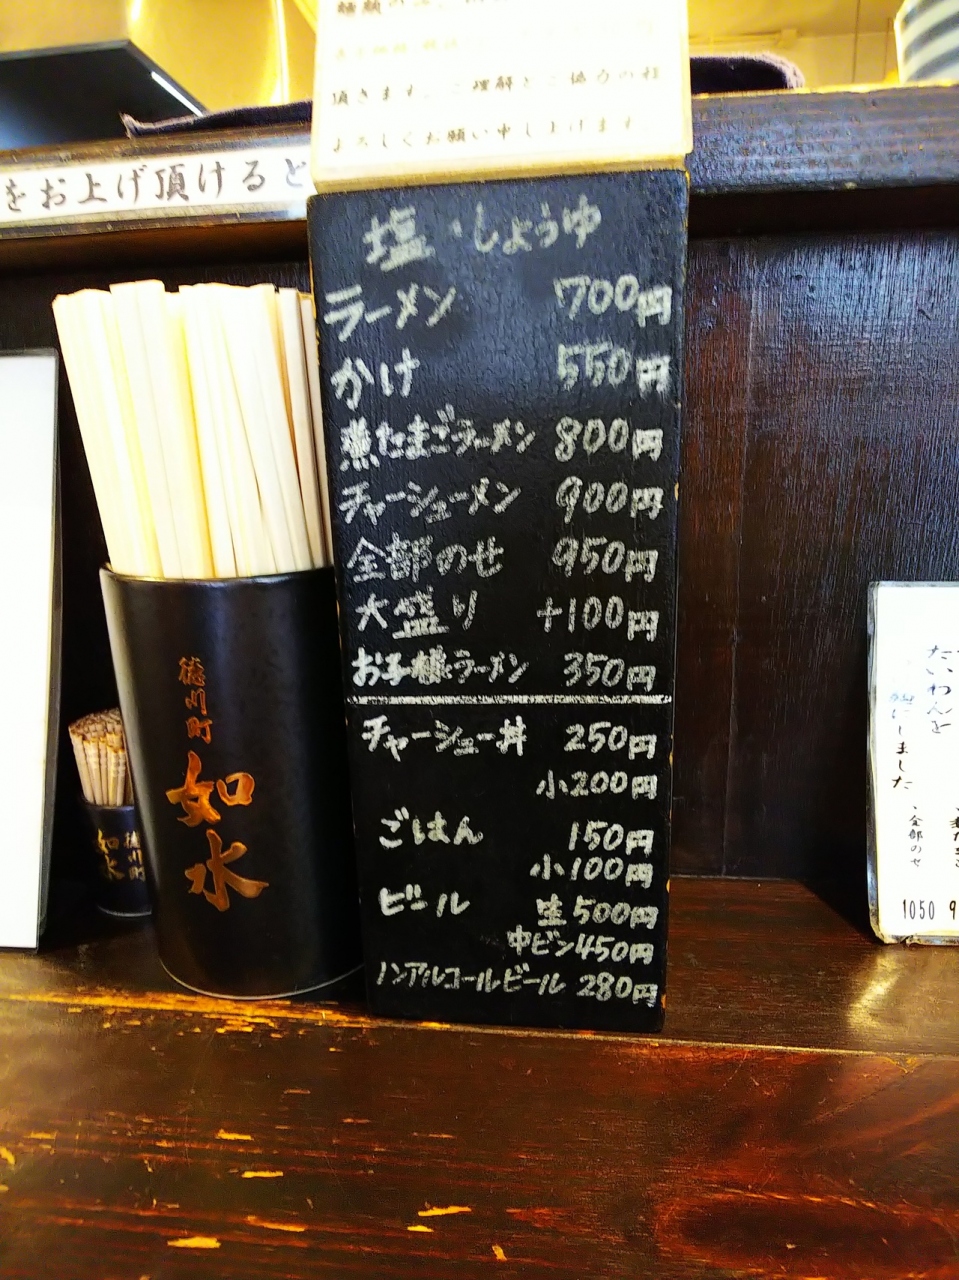 頂きます。ご理解とご協力の程
よろしくお願い申し上げます
をお上げ頂けると
塩・しょうゆ
ラーメン 700円
かけ 550円
煮たまごラーメン 800円
チャーシューメン 900円
全部のせ 950円
大盛り +100円
お子様ラーメン 350円
チャーシュー丼 250円
小200円
ごはん 150円
小100円
ビール 生500円
中ビン450円
ノンアルコールビール 280円
徳川町
如水
徳川町
如水
たいわんを
にしました
、全部のせ
1050